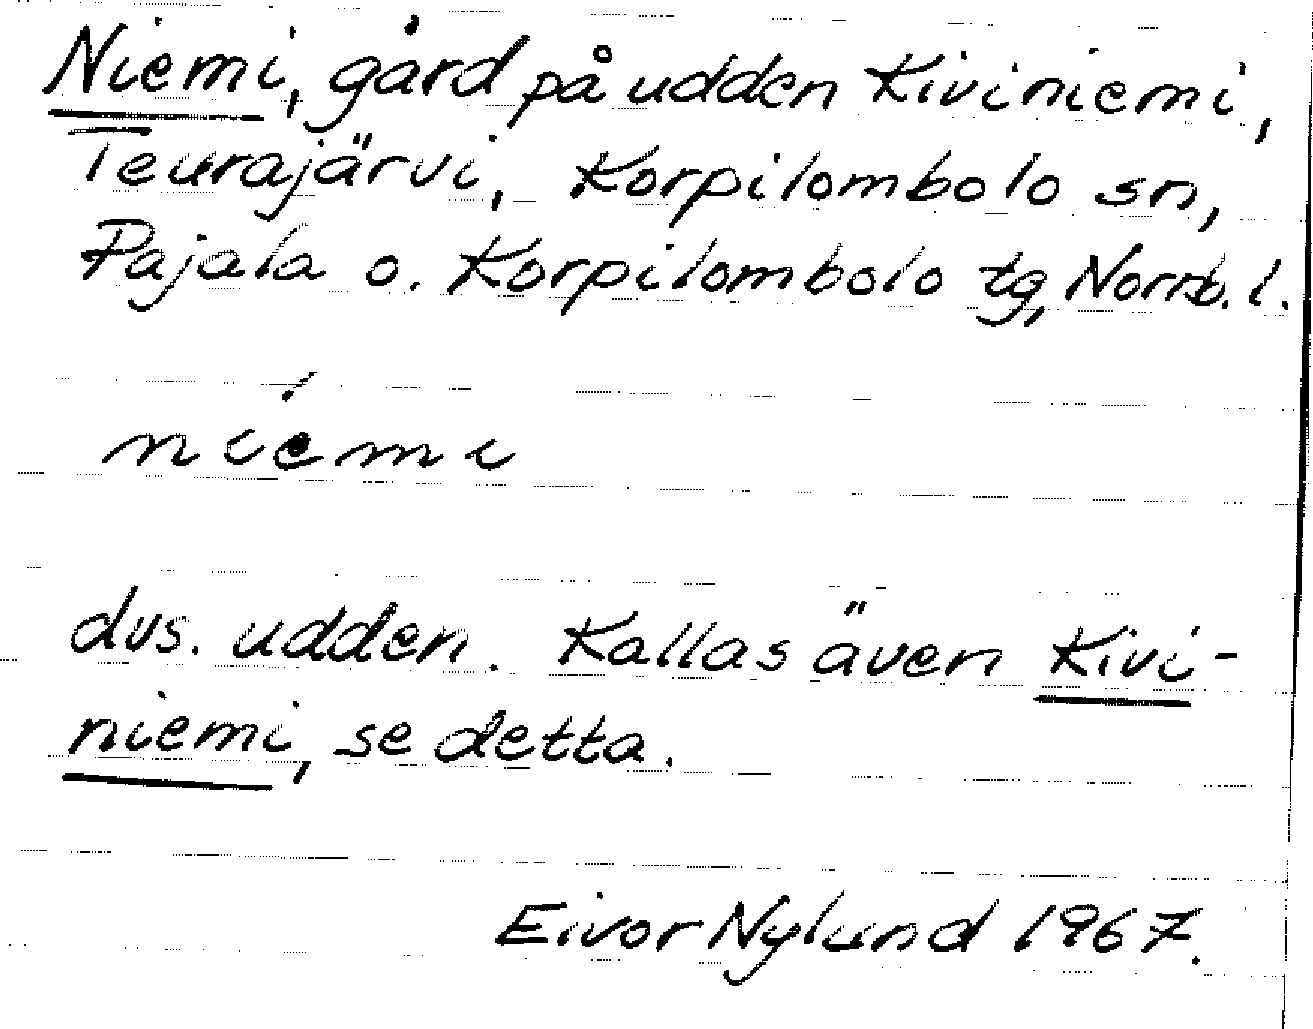 Niemi, gård på udden Kiviniemi,
Teurajärvi, Korpilombolo sn,
Pajala o. Korpilombolo tg, Norrb. l.
níemi
dvs. udden. Kallas även Kivi-
niemi, se detta.
Eivor Nylund 1967.